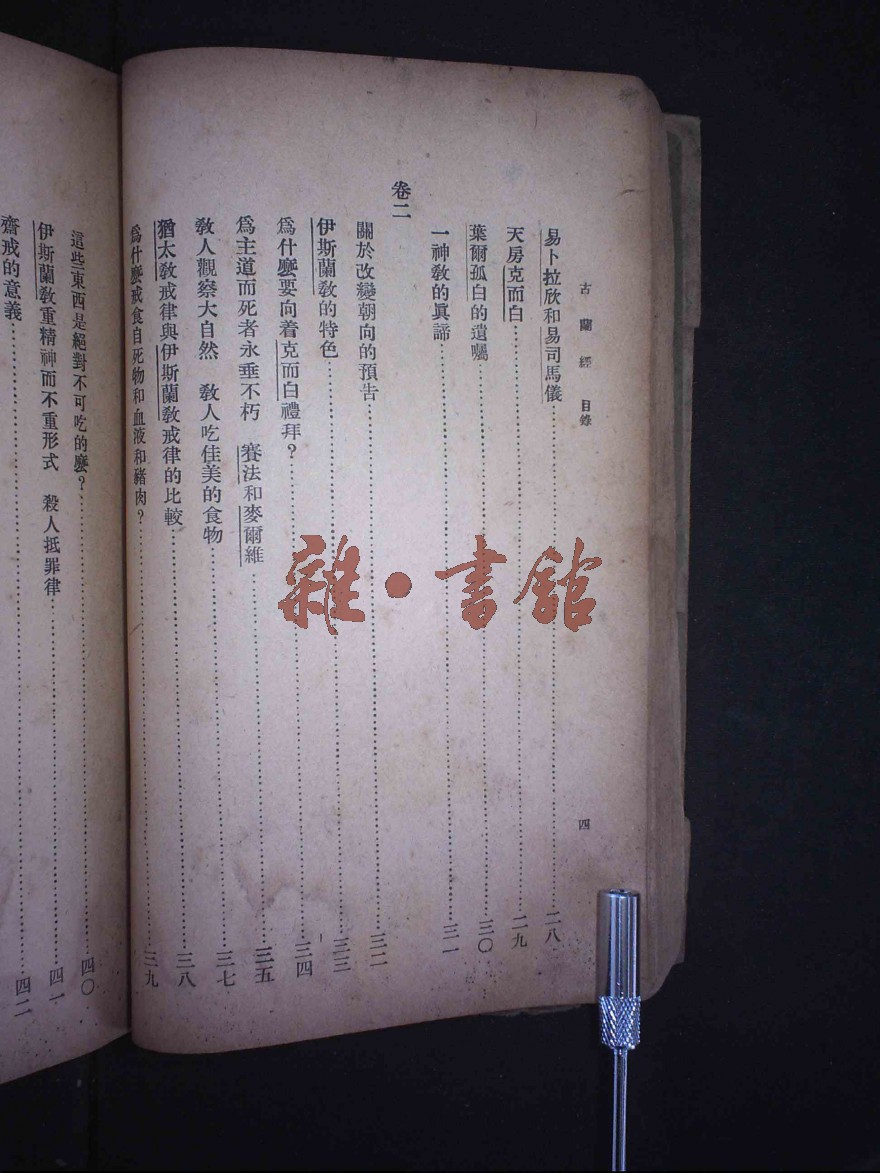 古蘭經 目錄 四
易卜拉欣和易司馬儀……二八
天房克而白……二九
葉爾孤白的遺囑……三〇
一神敎的眞諦……三一
卷二
關於改變朝向的預告……三二
伊斯蘭敎的特色……三三
爲什麽要向着克而白禮拜？……三四
爲主道而死者永垂不朽 賽法和麥爾維……三五
敎人觀察大自然 敎人吃佳美的食物……三七
猶太敎戒律與伊斯蘭敎戒律的比較……三八
爲什麽戒食自死物和血液和豬肉？……三九
這些東西是絕對不可吃的麽？……四〇
伊斯蘭敎重精神而不重形式 殺人抵罪律……四一
齋戒的意義……四二
雜·書館